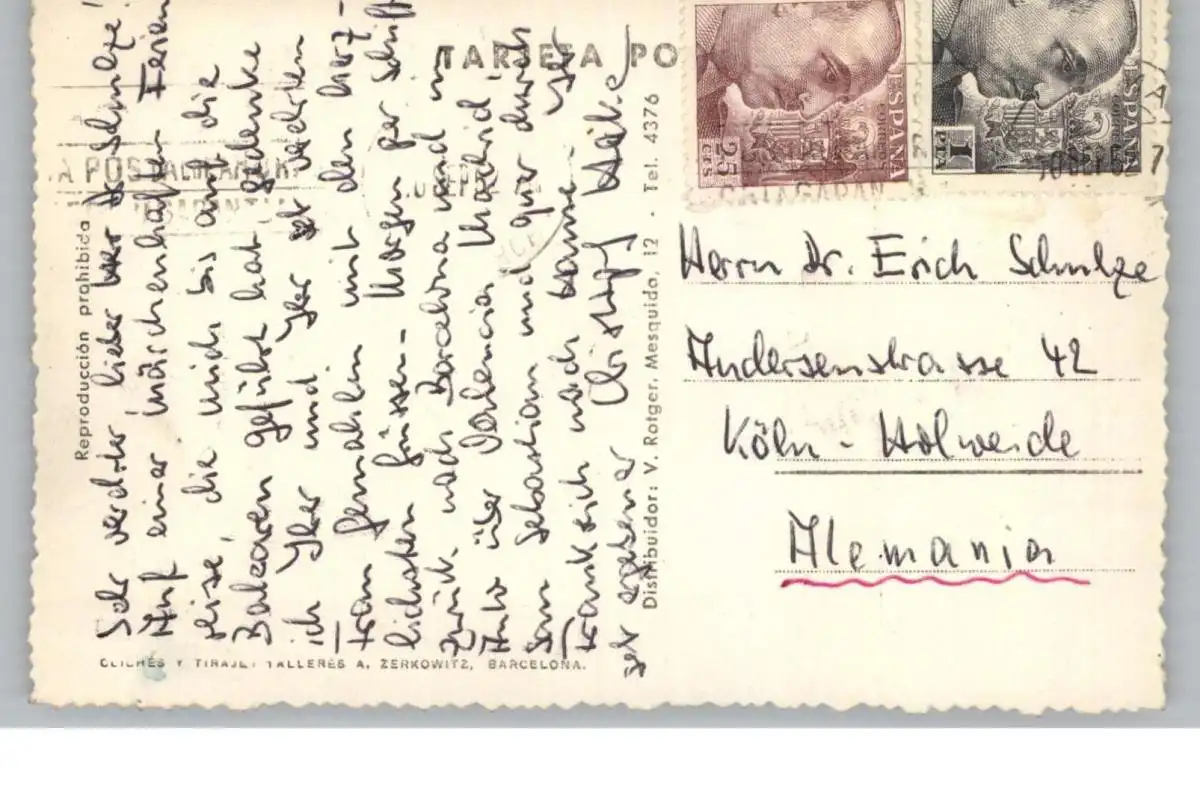 TARJETA PO
ESPAÑA
CORREOS
25 CTS
ESPAÑA
CORREOS
1 PTA
Reproducción prohibida
Sehr verehrter lieber Herr Dr Schulze!
Auf einer märchenhaften Ferien
reise, die mich bis auf die
Balearen geführt hat gedenke
ich Ihrer und Ihrer sehr verehrten
Frau Gemahlin mit den herz-
lichsten Grüssen. Morgen per Schiff
zurück nach Barcelona und im
Auto über Valencia Madrid
San Sebastian und quer durch
Frankreich nach Hause. Ihr
sehr ergebener
Distribuidor: V. Rotger. Mesquida, 12 - Tel. 4376
CLICHÉS Y TIRAJE: TALLERES A. ZERKOWITZ, BARCELONA.
Herrn Dr. Erich Schulze
Andersenstrasse 42
Köln - Holweide
Alemania